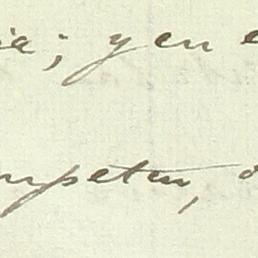 ia; y en e
mpeten,